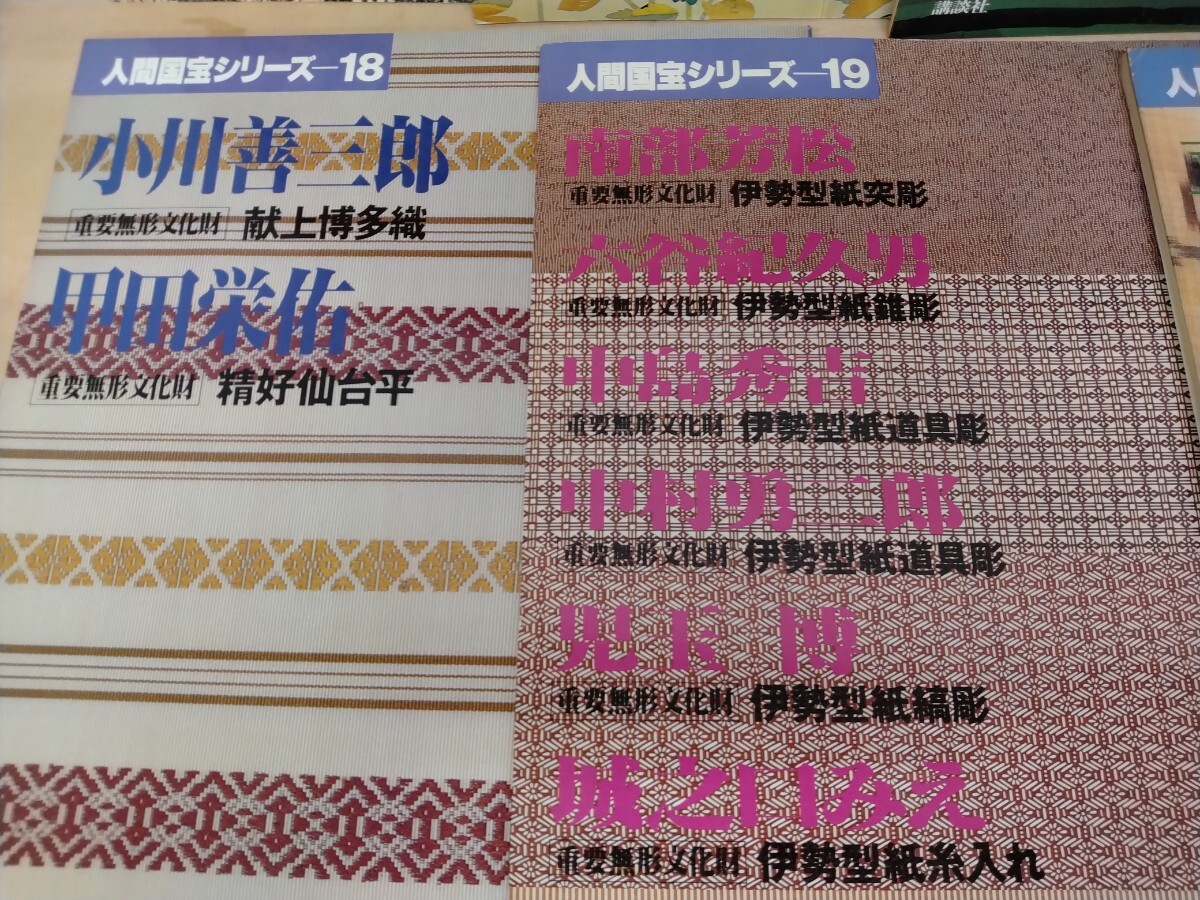 講談社
人間国宝シリーズ―18
小川善三郎
重要無形文化財 献上博多織
甲田栄佑
重要無形文化財 精好仙台平
人間国宝シリーズ―19
南部芳松
重要無形文化財 伊勢型紙突彫
六谷紀久男
重要無形文化財 伊勢型紙錐彫
中島秀吉
重要無形文化財 伊勢型紙道具彫
中村勇二郎
重要無形文化財 伊勢型紙道具彫
児玉 博
重要無形文化財 伊勢型紙縞彫
城之口みえ
重要無形文化財 伊勢型紙糸入れ
人